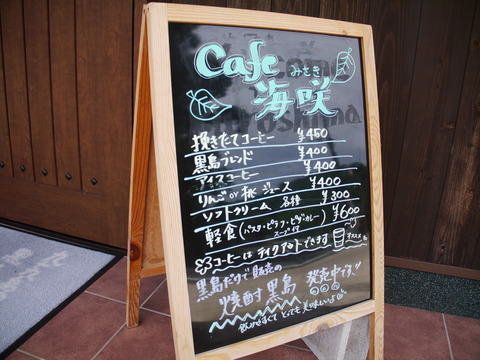 Cafe みさき
海咲
挽きたてコーヒー ¥450
黒島ブレンド ¥400
アイスコーヒー ¥400
りんごor桃ジュース ¥400
ソフトクリーム 各種 ¥300
軽食(パスタ・ピラフ・ピザ・カレー ¥600
スープ付
コーヒーはテイクアウトできます オススメ
黒島だけで販売の
焼酎 黒島 発売中です!!
飲みやすくてとっても美味しいよ